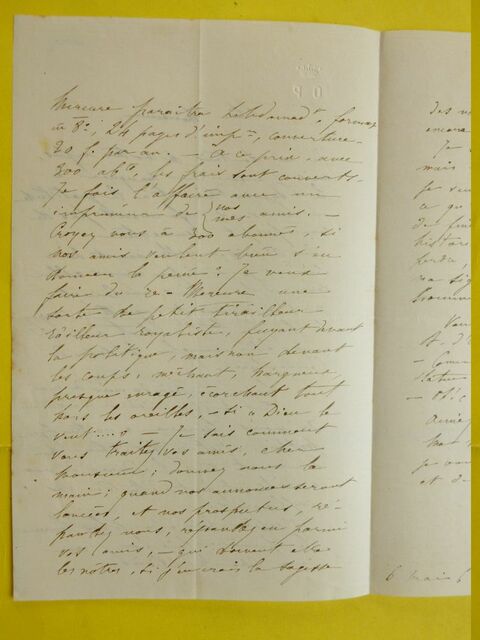 Mercure paraîtra hebdomad.re, format
in 8°; 24 pages d'imp.on, couverture.
20 f. par an. — A ce prix, avec
300 ab.ts, les frais sont couverts.
Je fais l'affaire avec un
imprimeur de nos
mes amis. —
Croyez vous à 300 abonnés, si
nos amis veulent bien s'en
donner la peine? Je veux
faire du Mercure une
sorte de petit tirailleur
railleur royaliste, fuyant devant
la politique, mais non devant
les coups, méchant, hargneux,
presque enragé, écorchant tout
hors les oreilles, — si « Dieu le
veut.... » — Je sais comment
vous traitez vos amis, cher
Monsieur; donnez nous la
main; quand nos annonces seront
lancées, et nos prospectus, ré-
pandez nous, répandez en parmi
vos amis, — qui doivent être
les nôtres, si j'en crois la sagesse
O P
des
encore
Je
mais
je
ce qu
de
histor
perdu,
Vou
St. d'
— Com
statu
et d
6 mars 6